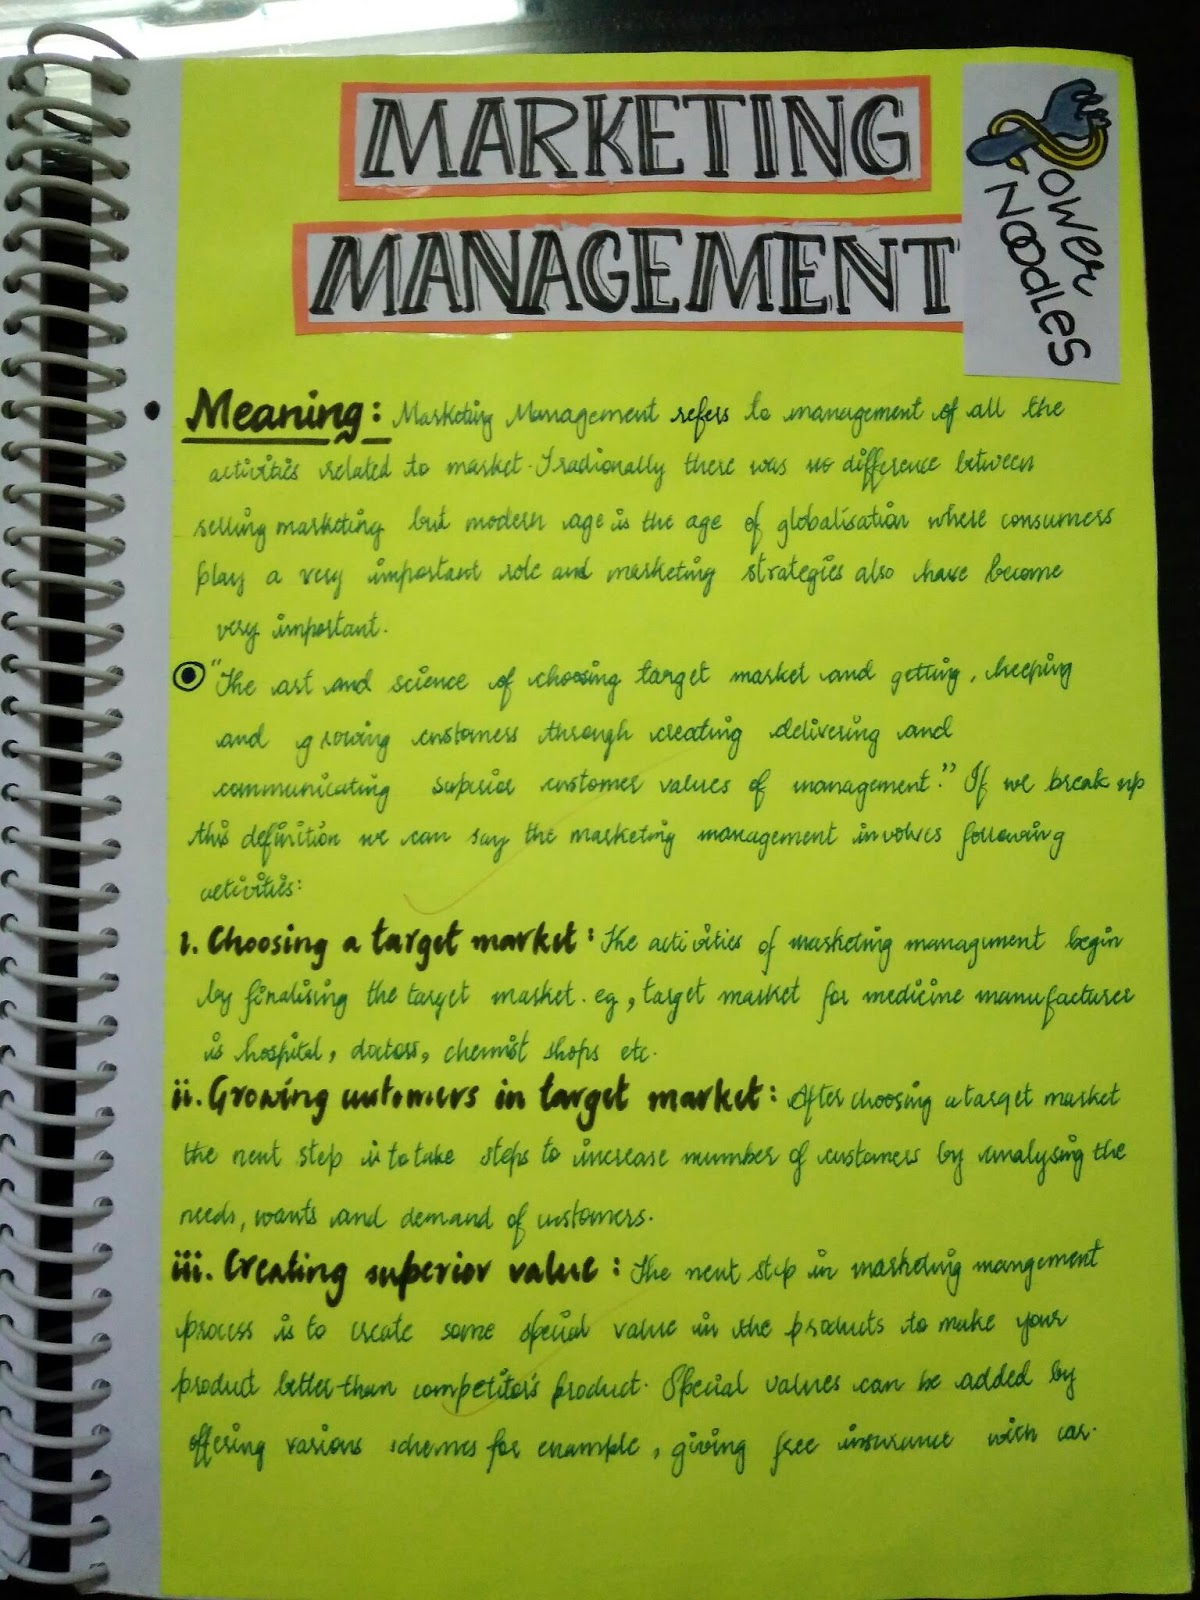 MARKETING
MANAGEMENT
POWER
NOODLES
• Meaning: Marketing Management refers to management of all the
activities related to market. Tradionally there was no difference between
selling marketing but modern age is the age of globalisation where consumers
play a very important role and marketing strategies also have become
very important.
"The art and science of choosing target market and getting, keeping
and growing customess through creating delivering and
communicating superior customer values of management." If we break up
this definition we can say the marketing management involves following
activities:
i. Choosing a target market: The activities of marketing management begin
by finalising the target market. eg, target market for medicine manufacturer
is hospital, doctors, chemist shops etc.
ii. Growing customers in target market: After choosing a target market
the next step is to take steps to increase number of customers by analysing the
needs, wants and demand of customers.
iii. Creating superior value: The next step in marketing mangement
process is to create some special value in the products to make your
product better than competitor's product. Special values can be added by
offering various schemes for example, giving free insurance with car.